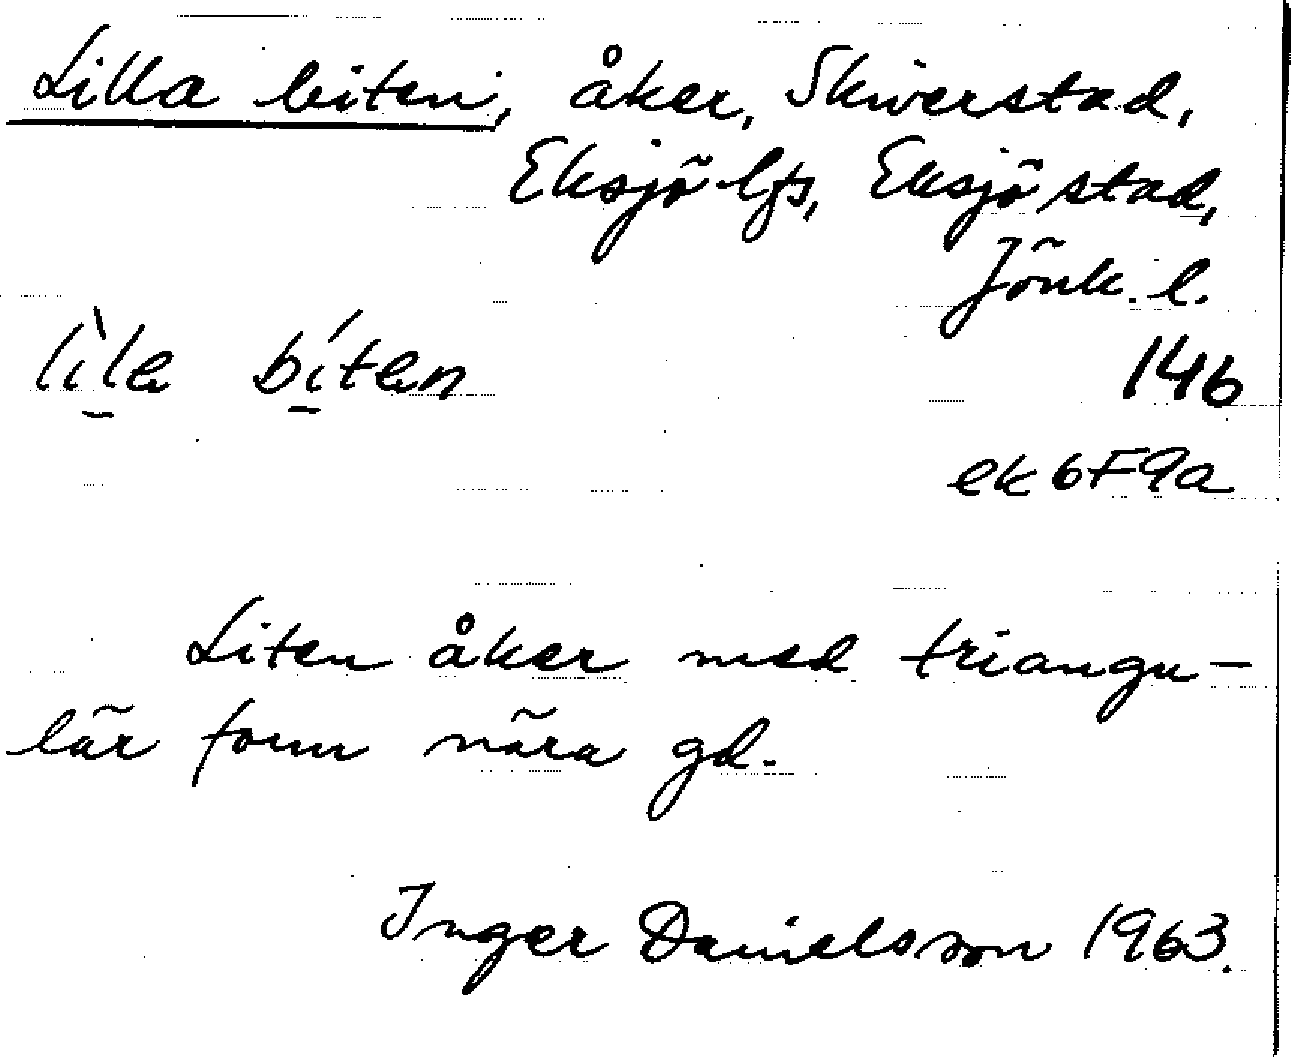 Lilla biten, åker, Skiverstad,
Eksjö lfs, Eksjö stad,
Jönk. l.
lìla bíten
146
ek 6F9a
Liten åker med triangu-
lär form nära gd.
Inger Danielsson 1963.